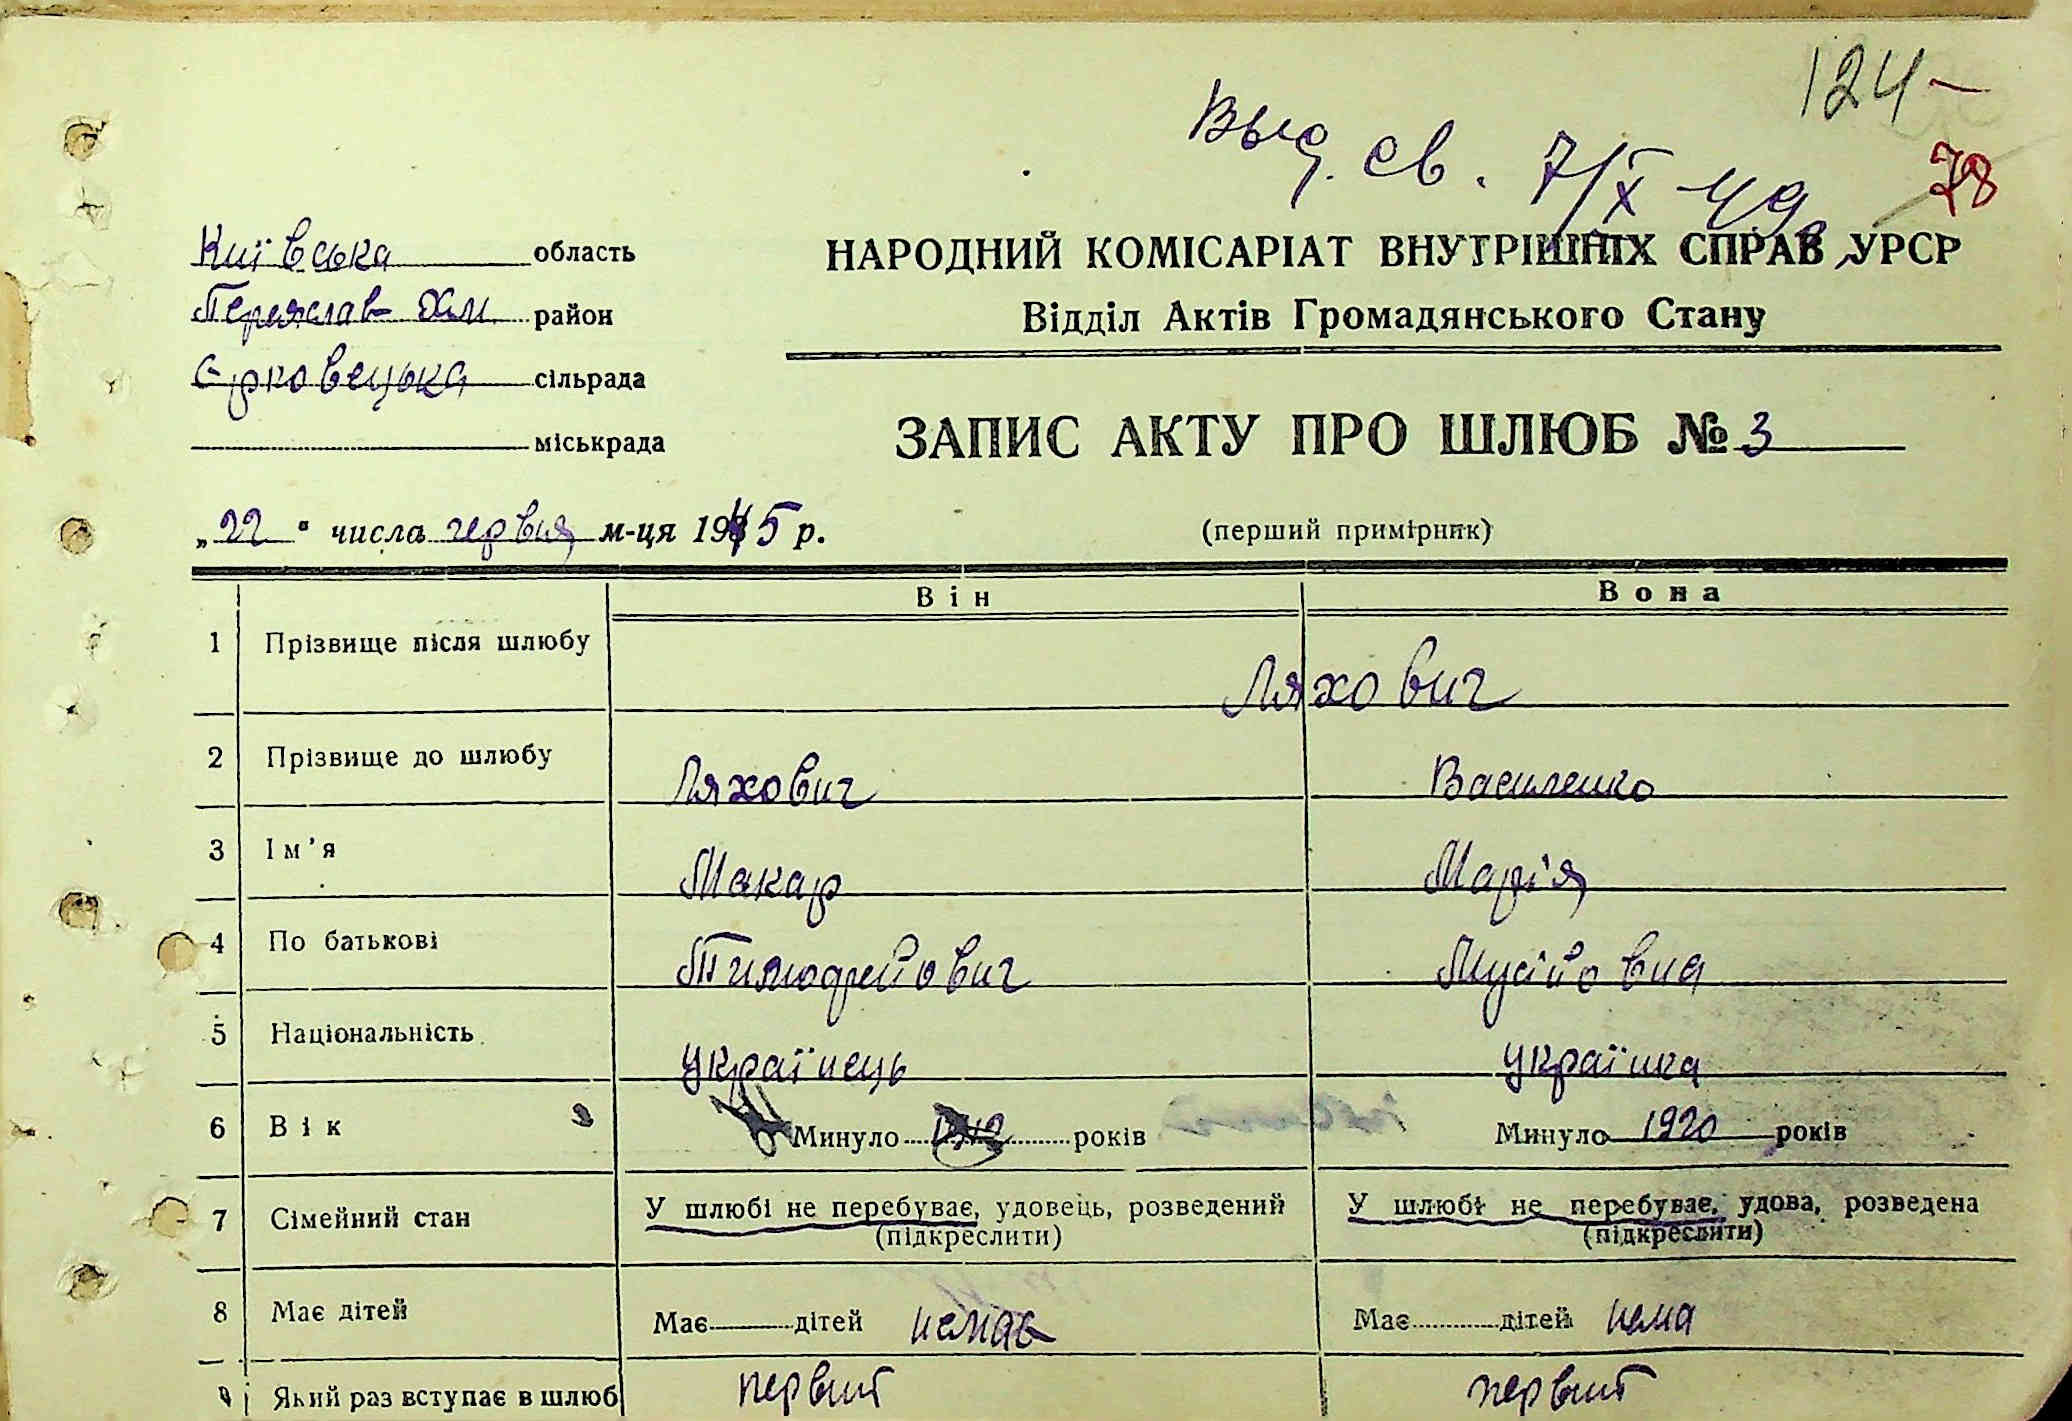 124-
Выд. св. 7/X-49
78
Київська область
Переяслав Хм. район
НАРОДНИЙ КОМІСАРІАТ ВНУТРІШНІХ СПРАВ УРСР
Відділ Актів Громадянського Стану
сільрада
міськрада
ЗАПИС АКТУ ПРО ШЛЮБ № 3
„22" числа червня м-ця 1945 р.
(перший примірник)
Він Вона
1 Прізвище після шлюбу Ляхович
2 Прізвище до шлюбу Ляхович Василенко
3 Ім'я Макар Марія
4 По батькові Тимофейович Мусійовна
5 Національність Українець Українка
6 Вік Минуло років Минуло 1920 років
7 Сімейний стан У шлюбі не перебуває, удовець, розведений У шлюбі не перебуває, удова, розведена
(підкреслити) (підкреслити)
8 Має дітей Має дітей немає Має дітей нема
9 Який раз вступає в шлюб первий первий